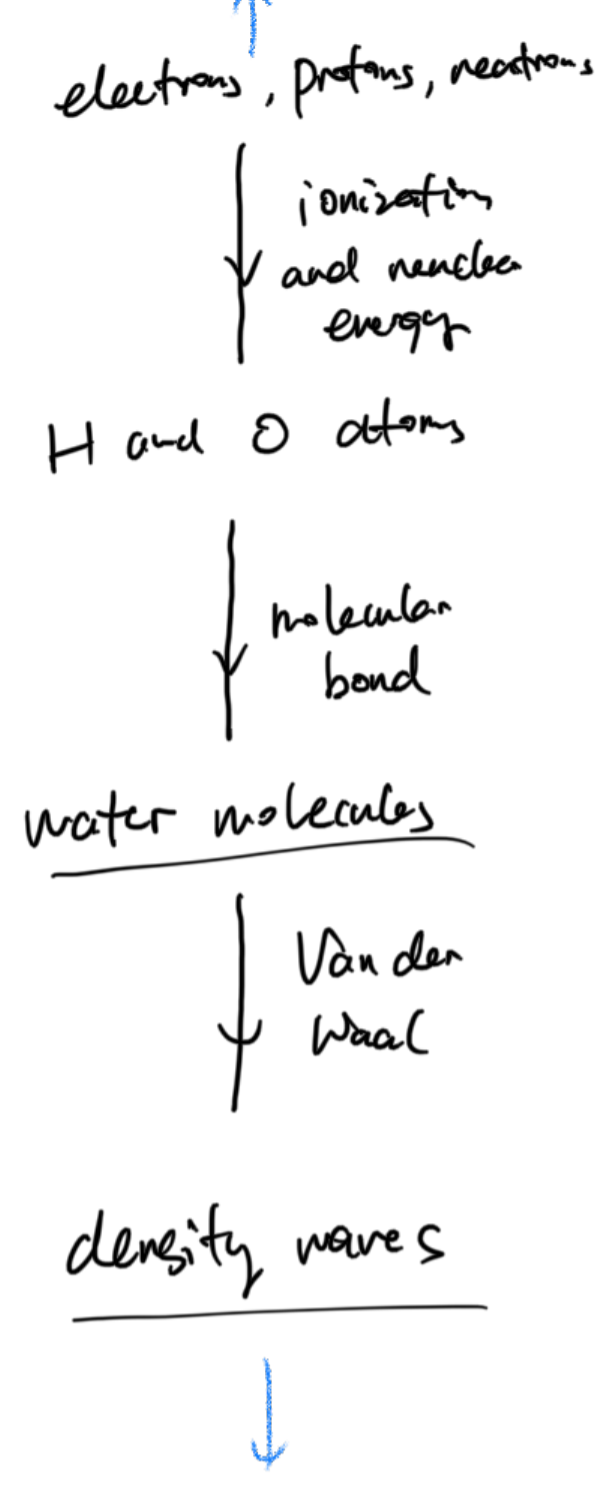 electrons, protons, neutrons
ionization
and nenclea
energy
H and O atoms
molecular
bond
water molecules
Van der
Waal
density waves